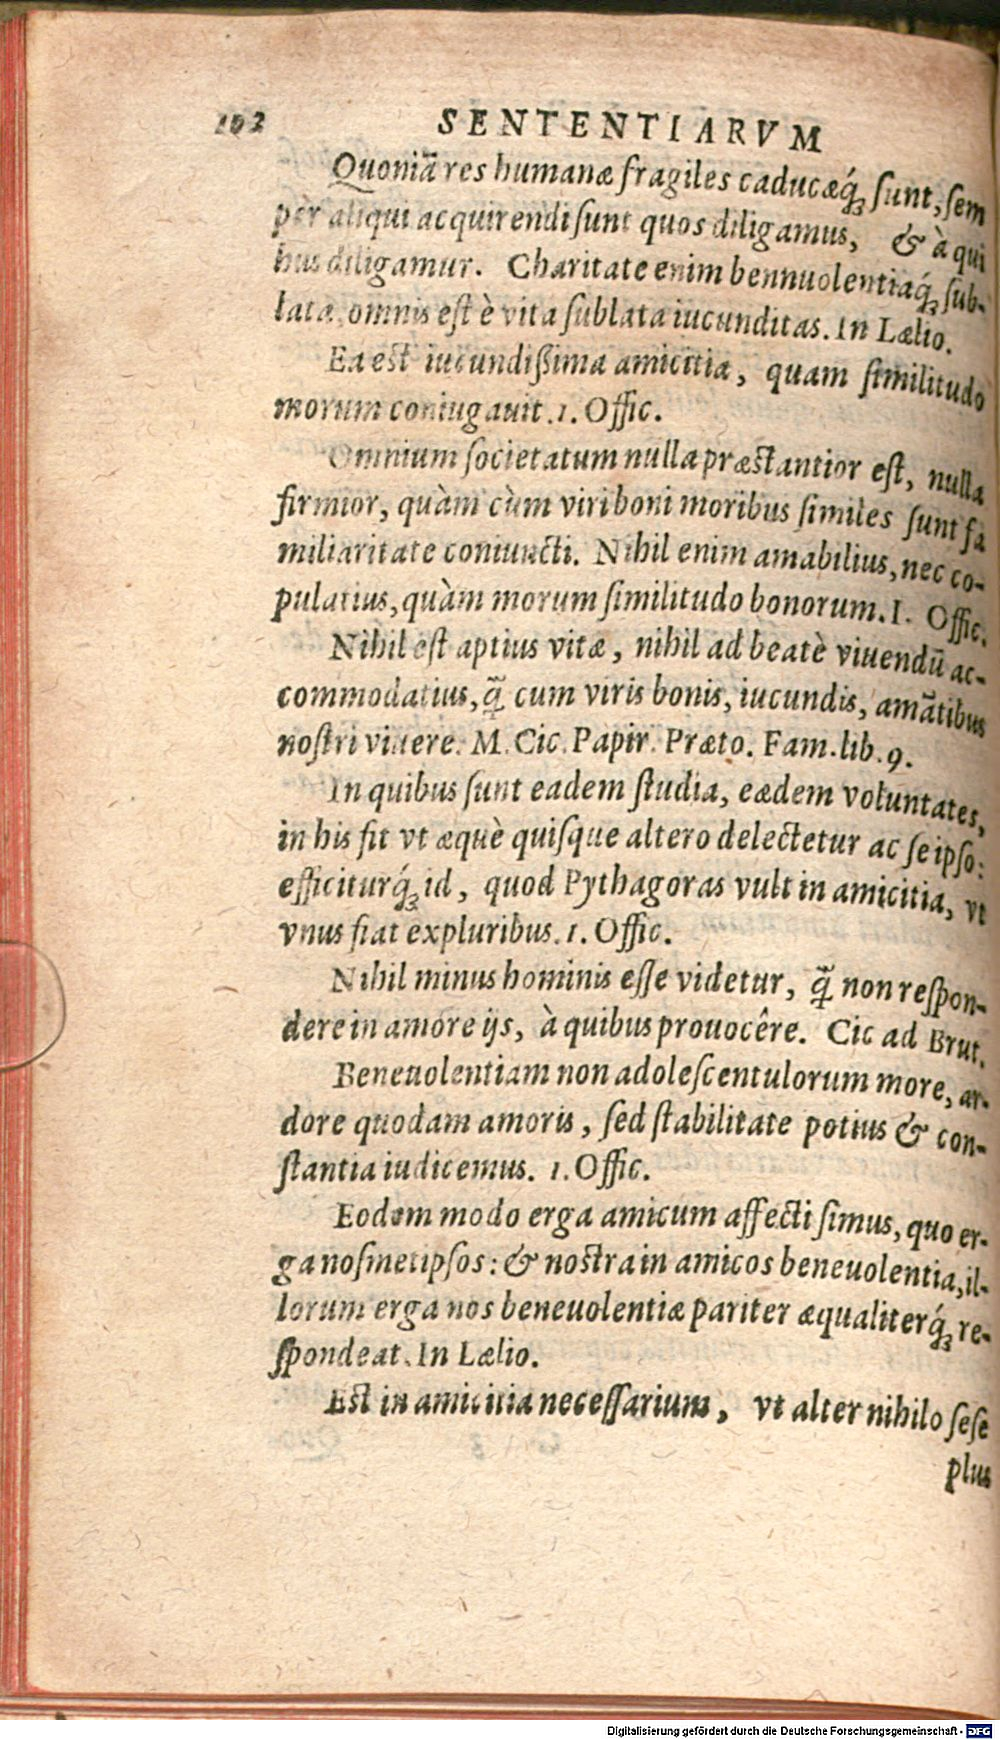 102 SENTENTIARVM
Quoniā res humanæ fragiles caducæq́ꝫ sunt, sem
per aliqui acquirendi sunt quos diligamus, & à qui
bus diligamur. Charitate enim bennuolentiaq́ꝫ sub-
lata, omnis est è vita sublata iucunditas. In Lælio.
Ea est iucundißima amicitia, quam similitudo
morum coniugauit. 1. Offic.
Omnium societatum nulla præstantior est, nulla
firmior, quàm cùm viri boni moribus similes sunt fa
miliaritate coniuncti. Nihil enim amabilius, nec co-
pulatius, quàm morum similitudo bonorum. I. Offic.
Nihil est aptius vitæ, nihil ad beatè viuendū ac-
commodatius, q̃ cum viris bonis, iucundis, amātibus
nostri viuere. M. Cic. Papir. Præto. Fam. lib. 9.
In quibus sunt eadem studia, eædem voluntates,
in his fit vt æquè quisque altero delectetur ac se ipso:
efficiturq́ꝫ id, quod Pythagoras vult in amicitia, vt
vnus fiat ex pluribus. 1. Offic.
Nihil minus hominis esse videtur, q̃ non respon-
dere in amore ijs, à quibus prouocêre. Cic ad Brut.
Beneuolentiam non adolescentulorum more, ar-
dore quodam amoris, sed stabilitate potius & con-
stantia iudicemus. 1. Offic.
Eodem modo erga amicum affecti simus, quo er-
ga nosmetipsos: & nostra in amicos beneuolentia, il-
lorum erga nos beneuolentiæ pariter æqualiterq́ꝫ re-
spondeat. In Lælio.
Est in amicitia necessarium, vt alter nihilo sese
plus
Digitalisierung gefördert durch die Deutsche Forschungsgemeinschaft - DFG